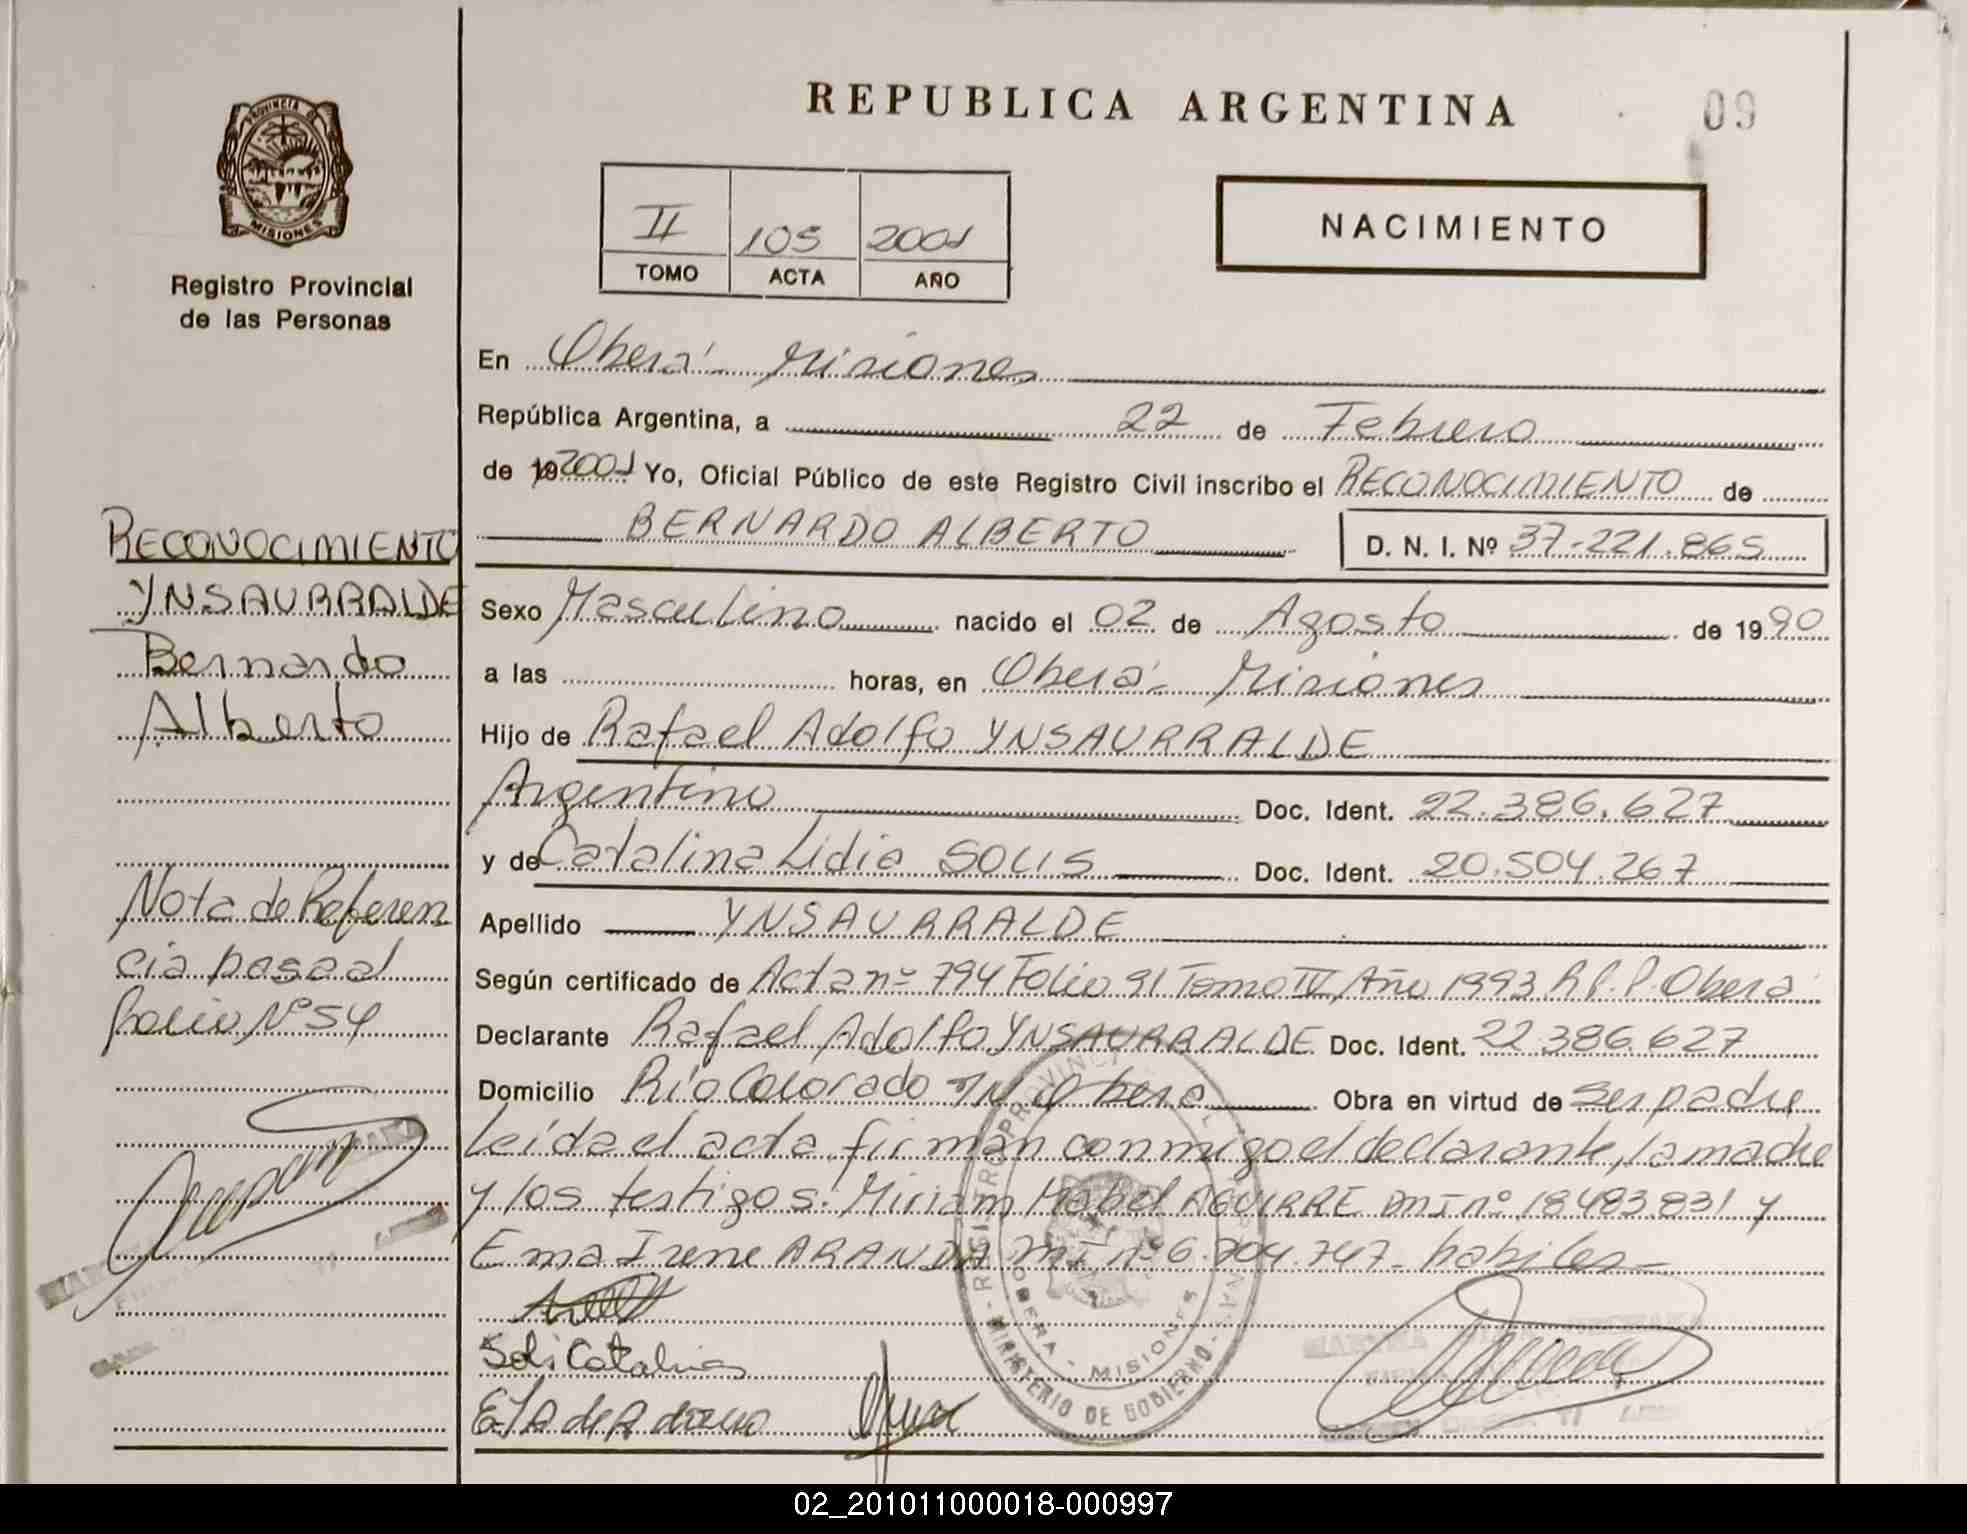 PROVINCIA DE
MISIONES
Registro Provincial
de las Personas
RECONOCIMIENTO
YNSAURRALDE
Bernardo
Alberto
Nota de Referen
cia pasa al
folio Nº 54
REPUBLICA ARGENTINA
09
II 105 2001
TOMO ACTA AÑO
NACIMIENTO
En Oberá - Misiones
República Argentina, a 22 de Febrero
de 19 2001 Yo, Oficial Público de este Registro Civil inscribo el RECONOCIMIENTO de
BERNARDO ALBERTO D. N. I. Nº 37.221.865
Sexo Masculino nacido el 02 de Agosto de 1990
a las horas, en Oberá - Misiones
Hijo de Rafael Adolfo YNSAURRALDE
Argentino Doc. Ident. 22.386.627
y de Catalina Lidia SOLIS Doc. Ident. 20.504.267
Apellido YNSAURRALDE
Según certificado de Acta nº 794 Folio 91 Tomo IV Año 1993 R.P.P. Oberá
Declarante Rafael Adolfo YNSAURRALDE Doc. Ident. 22.386.627
Domicilio Río Colorado S/N Oberá Obra en virtud de ser padre
Leída el acta, firman conmigo el declarante, la madre
y los testigos: Miriam Mabel AGUIRRE DNI nº 18.483.831 y
Ema Irene ARANDA M.I. nº 6.704.747 - habiles -
Solis Catalina
REGISTRO PROVINCIAL
OBERA - MISIONES
MINISTERIO DE GOBIERNO
02_201011000018-000997